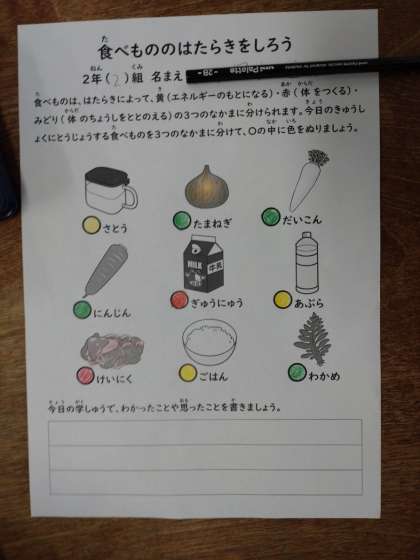 食べもののはたらきをしろう
2年(2)組 名まえ
食べものは、はたらきによって、黄(エネルギーのもとになる)・赤(体をつくる)・
みどり(体のちょうしをととのえる)の3つのなかまに分けられます。今日のきゅうし
ょくにとうじょうする食べものを3つのなかまに分けて、○の中に色をぬりましょう。
さとう
たまねぎ
だいこん
MILK
牛乳
にんじん
ぎゅうにゅう
あぶら
けいにく
ごはん
わかめ
今日の学しゅうで、わかったことや思ったことを書きましょう。